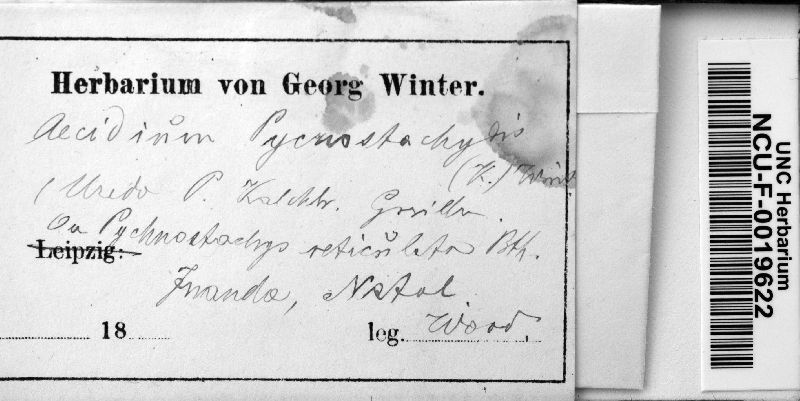 Herbarium von Georg Winter.
Aecidium Pycnostachydis
(K.) Wint
(Uredo P. Kalchbr. Grevillea.
On Pychnostachys reticulata Bth.
Leipzig:
Inanda, Natal
18 leg. Wood.
UNC Herbarium
NCU-F-0019622